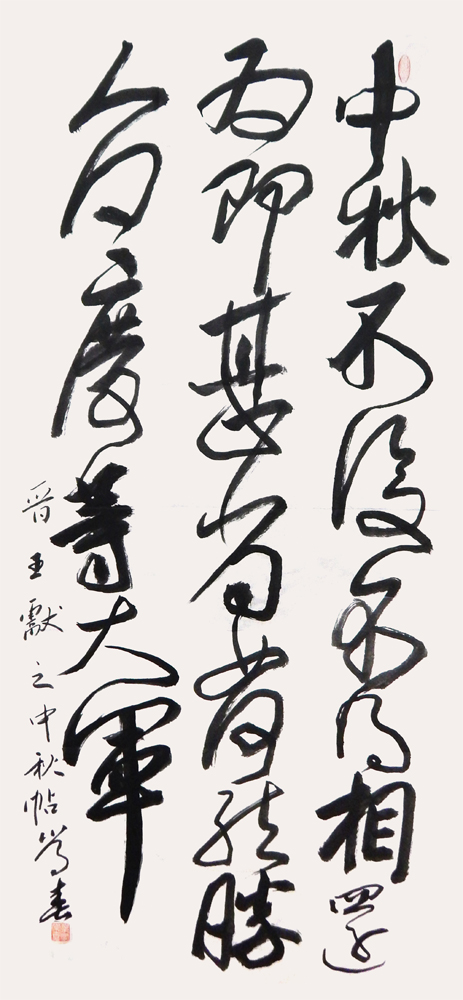 中秋不復不得相還
为即甚省如何然勝
人何慶等大軍
晋王獻之中秋帖